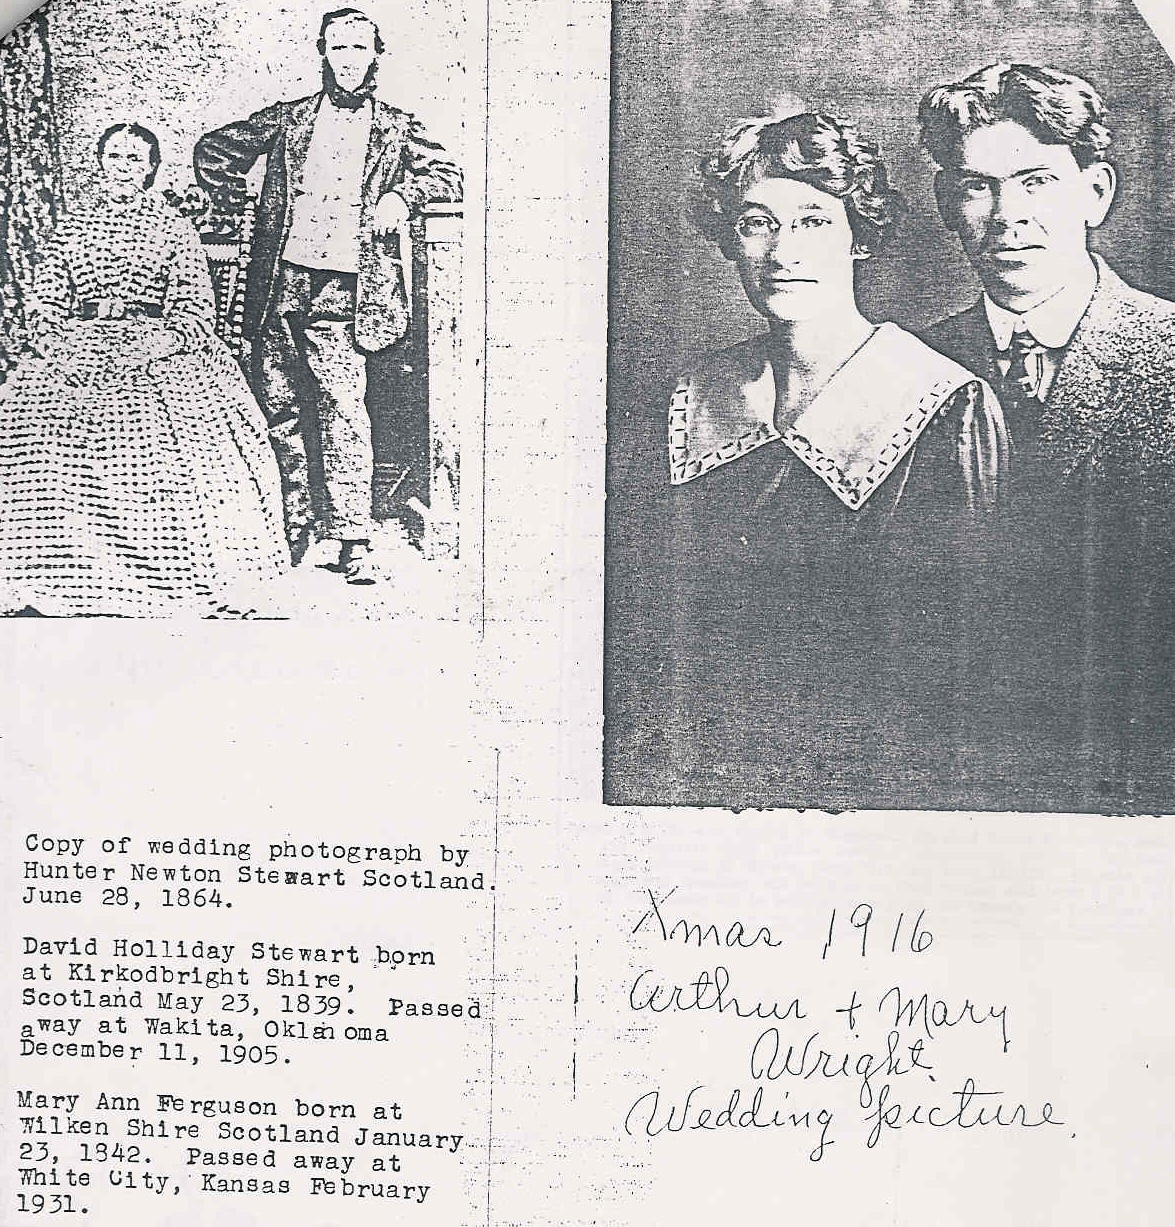 Copy of wedding photograph by
Hunter Newton Stewart Scotland.
June 28, 1864.
David Holliday Stewart born
at Kirkodbright Shire,
Scotland May 23, 1839. Passed
away at Wakita, Oklahoma
December 11, 1905.
Mary Ann Ferguson born at
Wilken Shire Scotland January
23, 1842. Passed away at
White City, Kansas February
1931.
Xmas 1916
Arthur + Mary
Wright
Wedding picture.